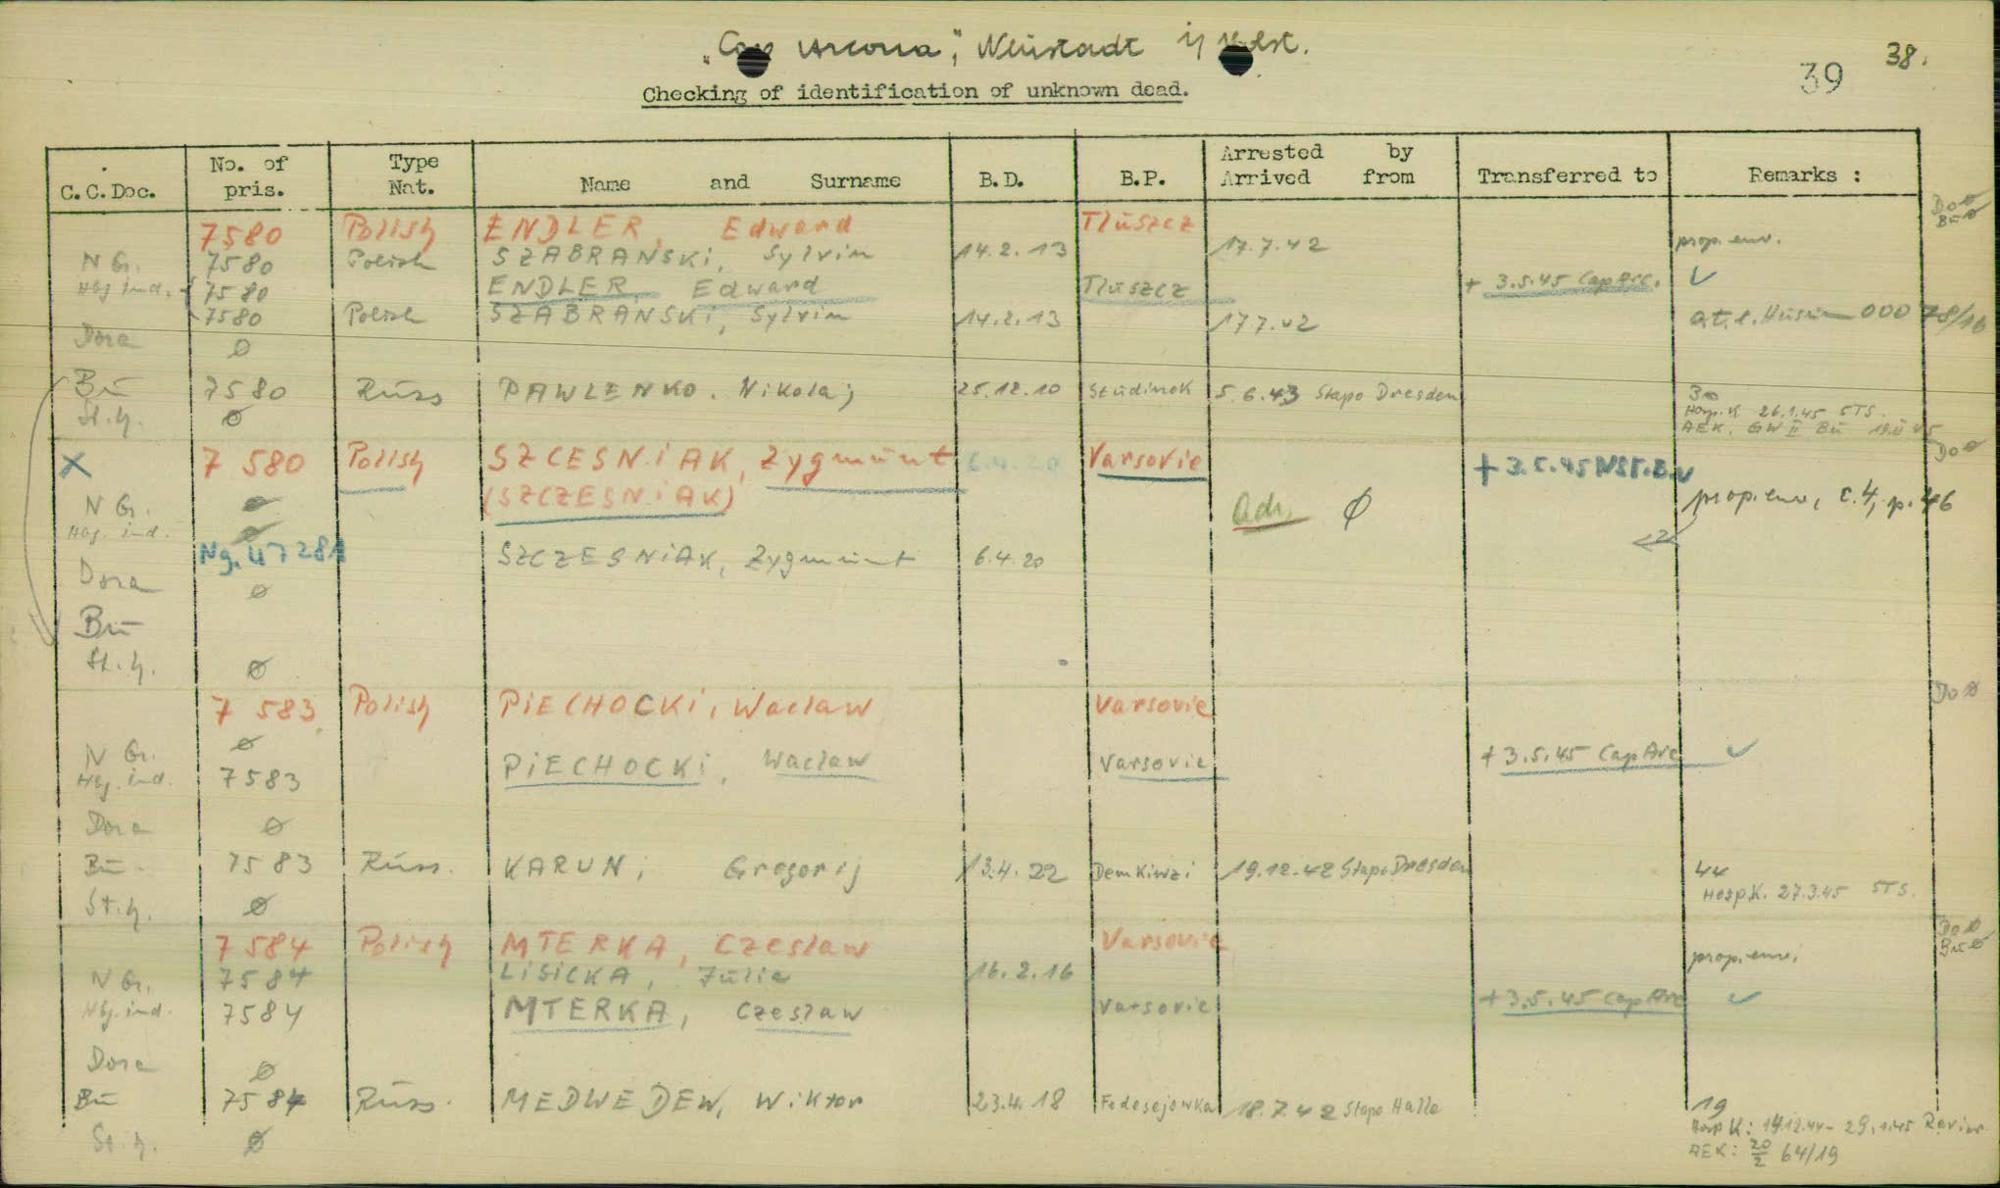 "Cap Arcona", Neustadt i/ Holst.
39 38.
Checking of identification of unknown dead.
C.C.Doc. No. of pris. Type Nat. Name and Surname B.D. B.P. Arrested by Arrived from Transferred to Remarks :
Do ø
Bu ø
7580 Polish ENDLER, Edward Tluszcz
N Gr. 7580 Polish SZABRANSKi, Sylvin 14.2.13 17.7.42 prop. env.
Hbg. ind. 7580 ENDLER, Edward Tluszcz + 3.5.45 Cap Arc. ✓
7580 Polish SZABRANSKi, Sylvin 14.2.13 17.7.42 000 78/16
Dora ø
Bu 7580 Russ PAWLENKO, Nikolaj 25.12.10 Studinok 5.6.43 Stapo Dresden 30
St.h. ø Hosp. K 26.1.45 STS.
AEK. GW II Bu
Do ø
X 7 580 Polish SZCESNiAK, Zygmunt 6.4.20 Varsovie + 3.5.45 NST.B.N
(SZCZESNiAK)
N Gr. ø Adr. ø prop. env, c.4, p.46
Hbg. ind. ø
Ng. 47281 SZCZESNiAK, Zygmunt 6.4.20
Dora ø
Bu
St.h. ø
7 583 Polish PiECHOCKi, Waclaw Varsovie Do ø
N Gr. ø
Hbg. ind. 7583 PiECHOCKi, Waclaw Varsovie + 3.5.45 Cap Arc ✓
Dora ø
Bu. 7583 Russ. KARUN, Gregorij 13.4.22 Demkiwzi 19.12.42 Stapo Dresden 44
St.h. ø Hosp.K. 27.3.45 STS.
Do ø
Bu ø
7 584 Polish MTERKA, Czeslaw Varsovie
N Gr. 7584 LiSiCKA, Julia 16.2.16 prop. env.
Hbg. ind. 7584 MTERKA, Czeslaw Varsovie + 3.5.45 Cap Arc ✓
Dora ø
Bu 7584 Russ. MEDWEDEW, Wiktor 23.4.18 Fedesejowka 18.7.42 Stapo Halle 19
St.h. ø Hosp K: 14.12.44 - 29.1.45 Revier
AEK: 20/2 64/19